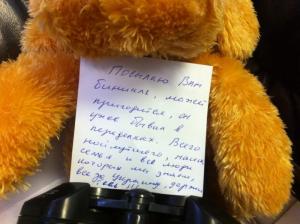 Посылаю Вам
бинокль, может
пригодится, он
уже бывал в
переделках. Всего
наилучшего, наша
семья и все люди
которых мы знаем,
все за